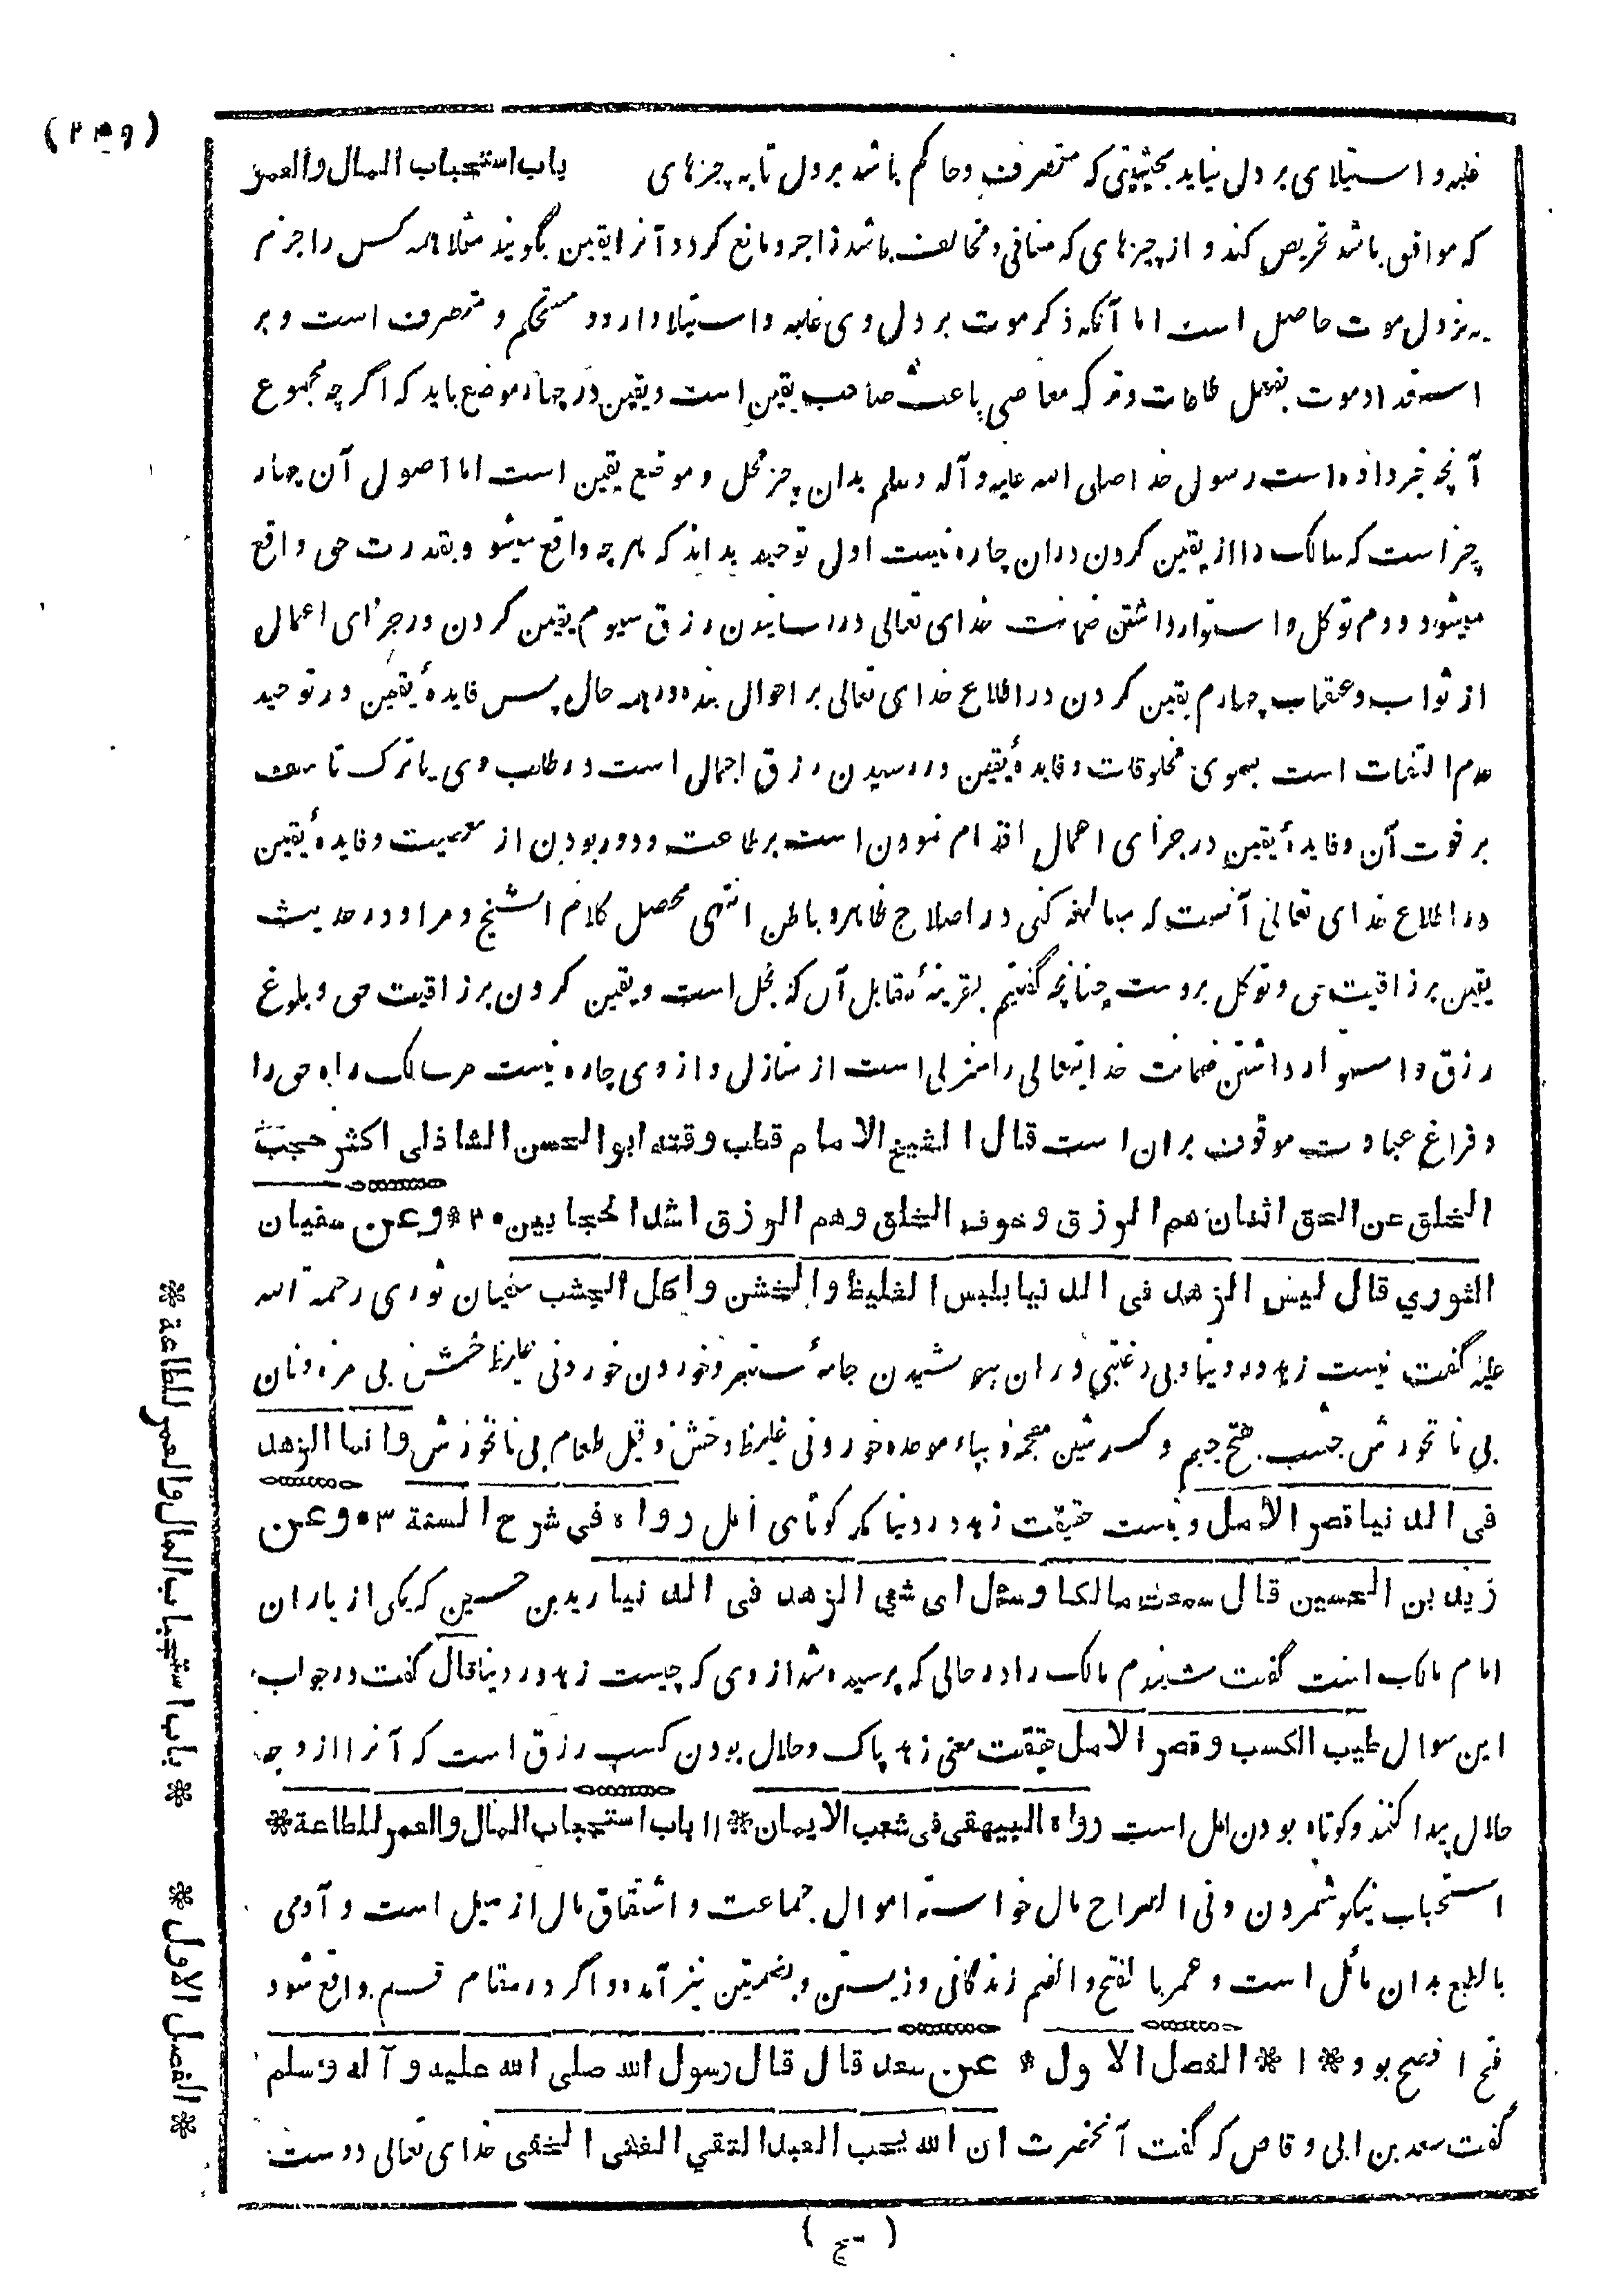 (۲۳۹)
باب استحباب المال والعمر
غلبه و استیلای بر دل نیابد بحیثیتی که متصرف و حاکم باشد بر دل تا به چیزهای
که موافق باشد تحریص کند و از چیزهای که منافی و مخالف باشد زاجر و مانع گردد آنرا یقین بگویند مثلا همه کس را جزم
به نزول موت حاصل است اما آنکه ذکر موت بر دل وی غلبه و استیلا دارد و مستحکم و متصرف است و بر
استعداد موت بفعل طاعات و ترک معاصی باعث صاحب یقین است و یقین در چهار موضع باید که اگر چه مجموع
آنچه خبر داده است رسول خدا صلی الله علیه و آله وسلم بدان چیز محل و موضع یقین است اما اصول آن چهار
چیز است که سالک را از یقین کردن دران چاره نیست اول توحید بداند که هر چه واقع میشو و بقدرت حق واقع
میشود دوم توکل و استوار داشتن ضمانت خدای تعالی در رسانیدن رزق سیوم یقین کردن در جزای اعمال
از ثواب و عقاب چهارم یقین کردن در اطلاع خدای تعالی بر احوال بنده در همه حال پس فایدهٔ یقین در توحید
عدم التفات است بسوی مخلوقات و فایدهٔ یقین در رسیدن رزق اجمال است در طلب وی یا ترک تاسف
بر فوت آن و فایدهٔ یقین در جزای اعمال اقدام نمودن است بر طاعت و دور بودن از معصیت و فایدهٔ یقین
در اطلاع خدای تعالی آنست که مبالغه کنی در اصلاح ظاهر و باطن انتهی محصل کلام الشیخ و مراد در حدیث
یقین بر رزاقیت حق و توکل بروست چنانچه گفتیم بقرینهٔ مقابل آن که بخل است و یقین کردن بر رزاقیت حق و بلوغ
رزق و استوار داشتن ضمانت خدایتعالی را منزلی است از منازل و از وی چاره نیست مر سالک راه حق را
و فراغ عبادت موقوف بران است قال الشیخ الامام قطب وقته ابو الحسن الشاذلی اکثر حجب
الخلق عن الحق اثنان هم الرزق و خوف الخلق وهم الرزق اشد الحجابین ۲۰ * وعن سفیان
الثوري قال لیس الزهد فی الدنیا بلبس الغلیظ والخشن واکل الجشب سفیان ثوری رحمة الله
علیه گفت نیست زهد در دنیا و بی رغبتی دران پوشیدن جامهٔ ستبر و خوردن خوردنی غلیظ خشن بی مزه و نان
بی نانخورش جشب بفتح جیم و کسر شین معجمه و بباء موحده خوردنی غلیظ و خشن و قیل طعام بی نانخورش وانما الزهد
فی الدنیا قصر الامل و نیست حقیقت زهد در دنیا مگر کوتاهی امل رواه فی شرح السنة ۳۰ وعن
زید بن الحسین قال سمعت مالکا وسئل ای شيء الزهد فی الدنیا زید بن حسین که یکی از یاران
امام مالک است گفت شنیدم مالک را در حالی که پرسیده شد از وی که چیست زهد در دنیا قال گفت در جواب
این سوال طیب الکسب وقصر الامل حقیقت معنی زهد پاک و حلال بودن کسب رزق است که آنرا از وجه
حلال پیدا کنند و کوتاه بودن امل است رواه البیهقی فی شعب الایمان * ۱۱ باب استحباب المال والعمر للطاعة *
استحباب نیکو شمردن و فی الصراح مال خواسته اموال جماعت و اشتقاق مال از میل است و آدمی
بالطبع بدان مائل است و عمر با لفتح والضم زندگانی و زیستن و بضمتین نیز آمده و اگر در مقام قسم واقع شود
فتح افصح بود * ۱ * الفصل الاول * عن سعد قال قال رسول الله صلی الله علیه وآله وسلم
گفت سعد بن ابی وقاص که گفت آنحضرت ان الله یحب العبد التقي الغنی الخفی خدای تعالی دوست
* باب استحباب المال والعمر للطاعة *
* الفصل الاول *